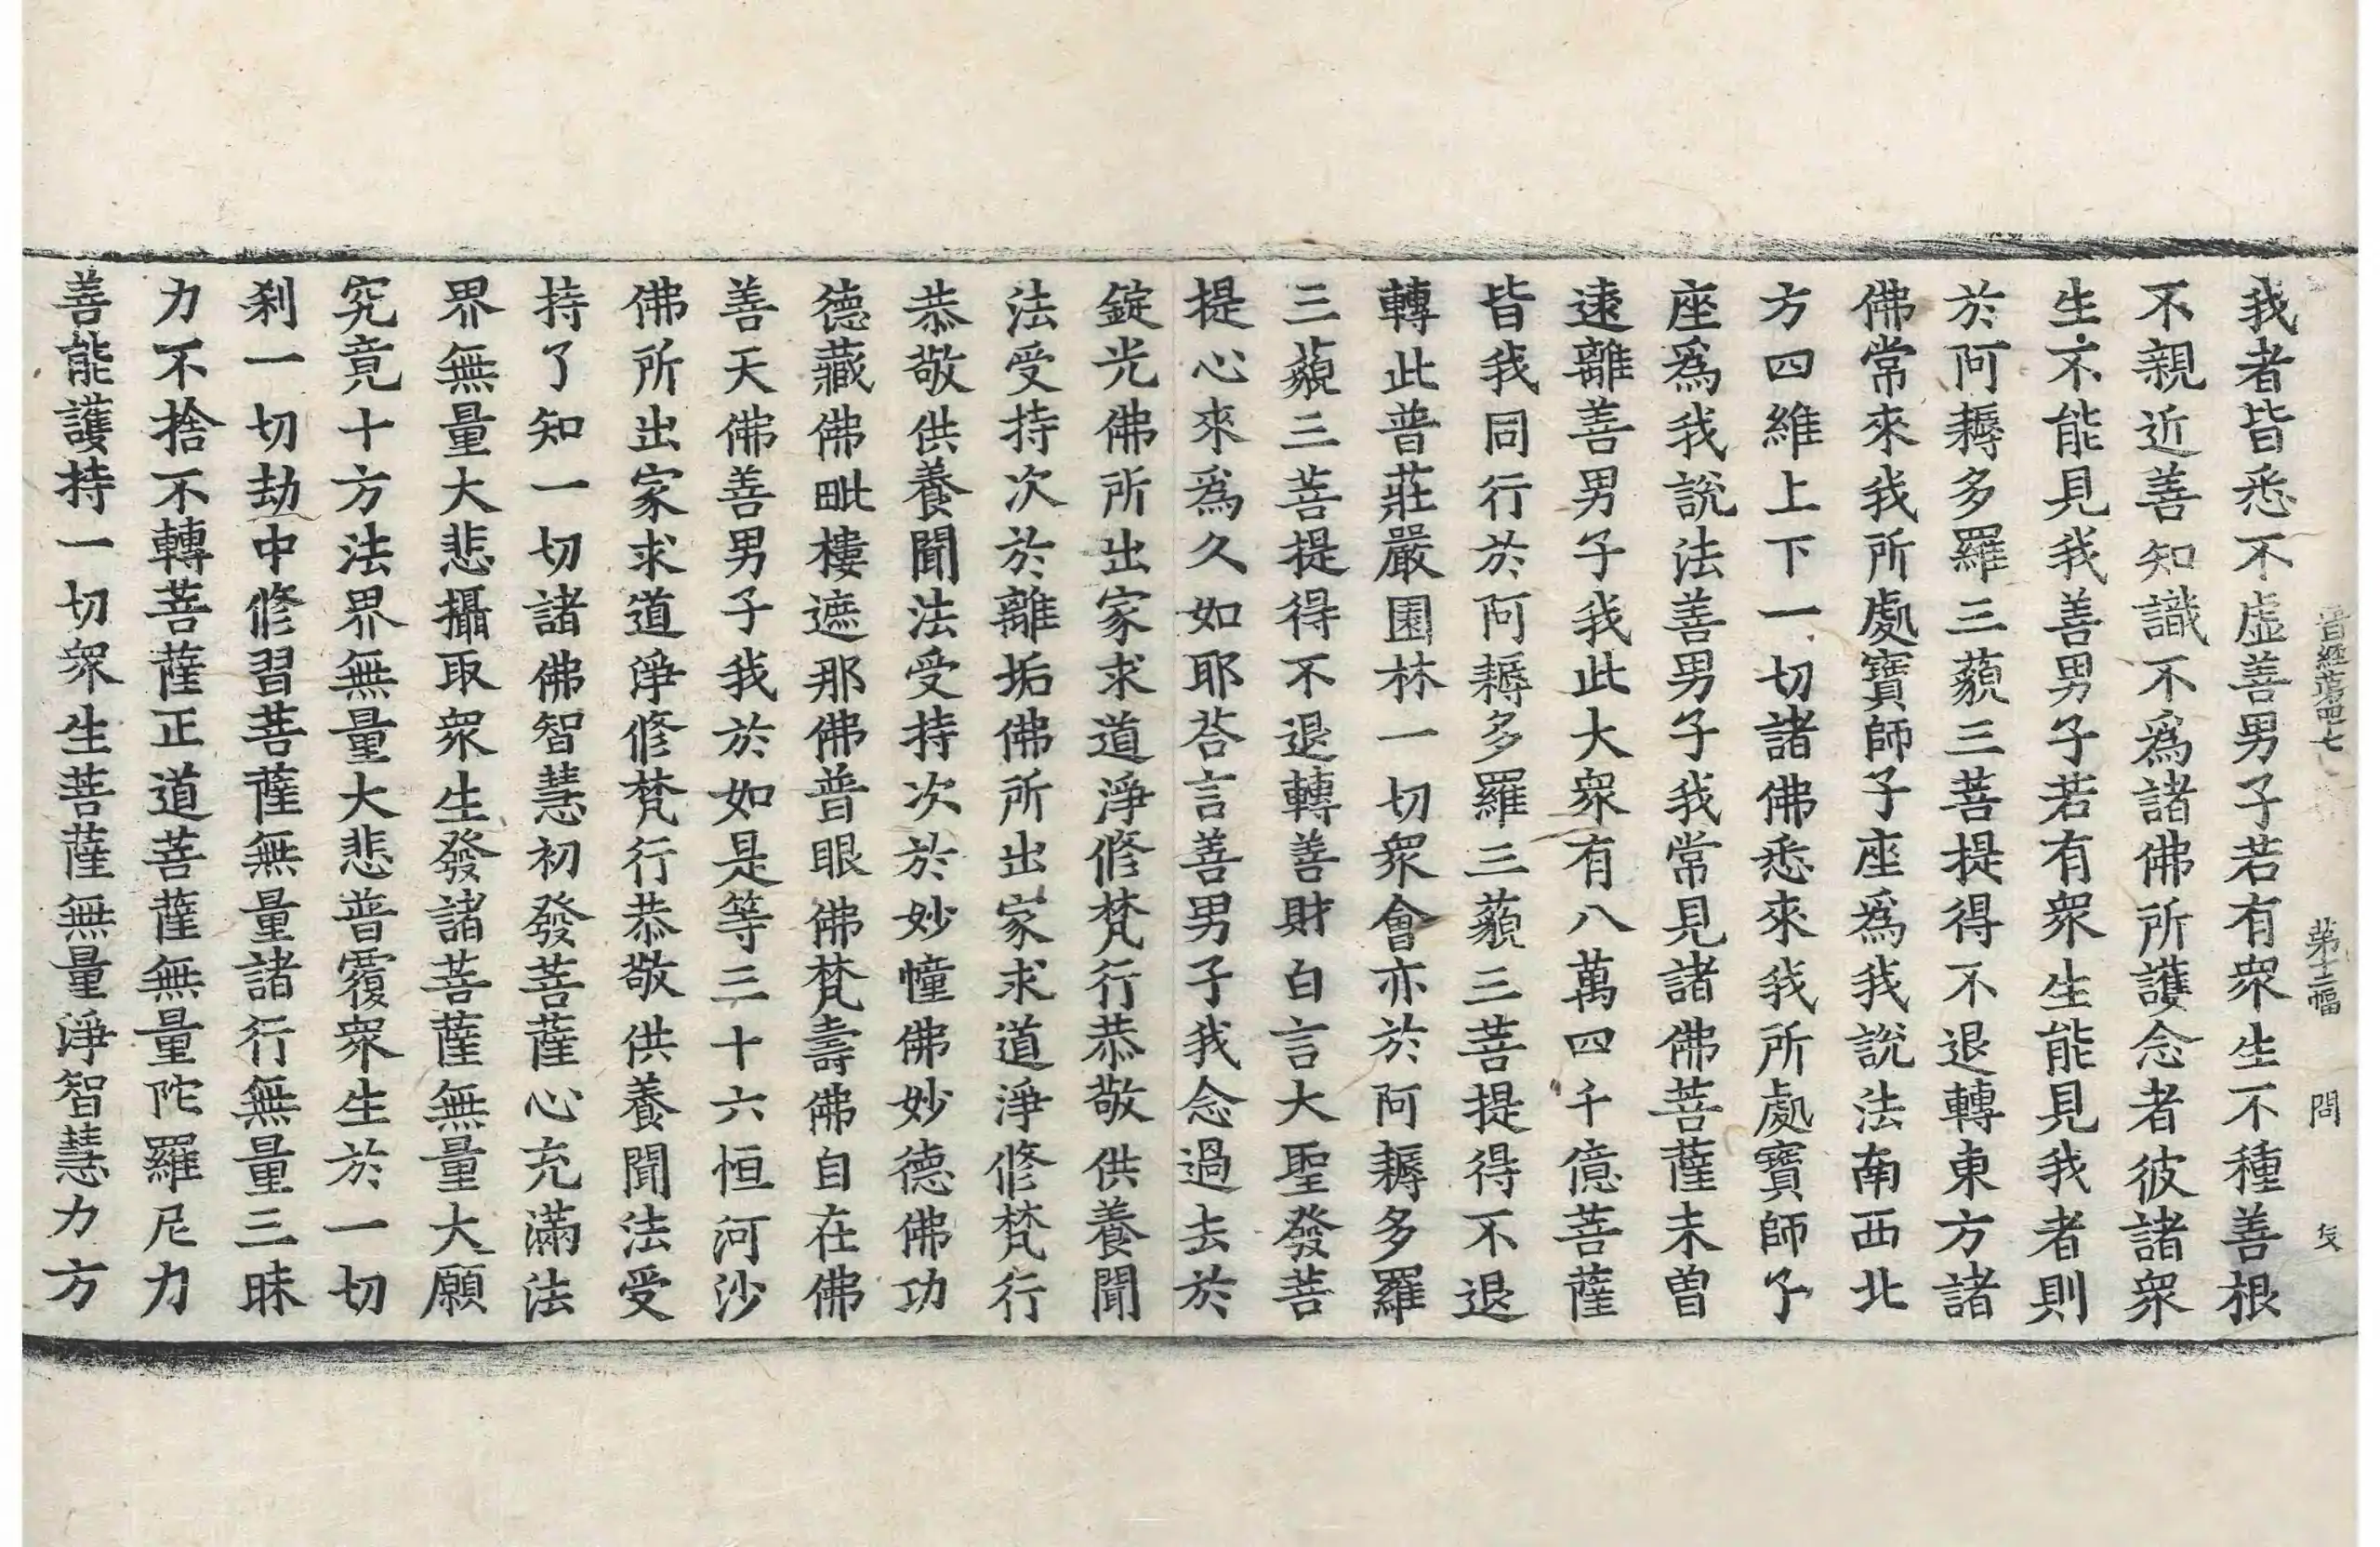 晋經卷第四十七 第十二幅 問 友
我者皆悉不虛善男子若有衆生不種善根
不親近善知識不爲諸佛所護念者彼諸衆
生不能見我善男子若有衆生能見我者則
於阿耨多羅三藐三菩提得不退轉東方諸
佛常來我所處寶師子座爲我說法南西北
方四維上下一切諸佛悉來我所處寶師子
座爲我說法善男子我常見諸佛菩薩未曽
逺離善男子我此大衆有八萬四千億菩薩
皆我同行於阿耨多羅三藐三菩提得不退
轉此普莊嚴園林一切衆會亦於阿耨多羅
三藐三菩提得不退轉善財白言大聖發菩
提心來爲久如耶荅言善男子我念過去於
錠光佛所出家求道淨修梵行恭敬供養聞
法受持次於離垢佛所出家求道淨修梵行
恭敬供養聞法受持次於妙幢佛妙德佛功
德藏佛毗樓遮那佛普眼佛梵壽佛自在佛
善天佛善男子我於如是等三十六恒河沙
佛所出家求道淨修梵行恭敬供養聞法受
持了知一切諸佛智慧初發菩薩心充滿法
界無量大悲攝取衆生發諸菩薩無量大願
究竟十方法界無量大悲普覆衆生於一切
刹一切劫中修習菩薩無量諸行無量三昧
力不捨不轉菩薩正道菩薩無量陀羅尼力
善能護持一切衆生菩薩無量淨智慧力方